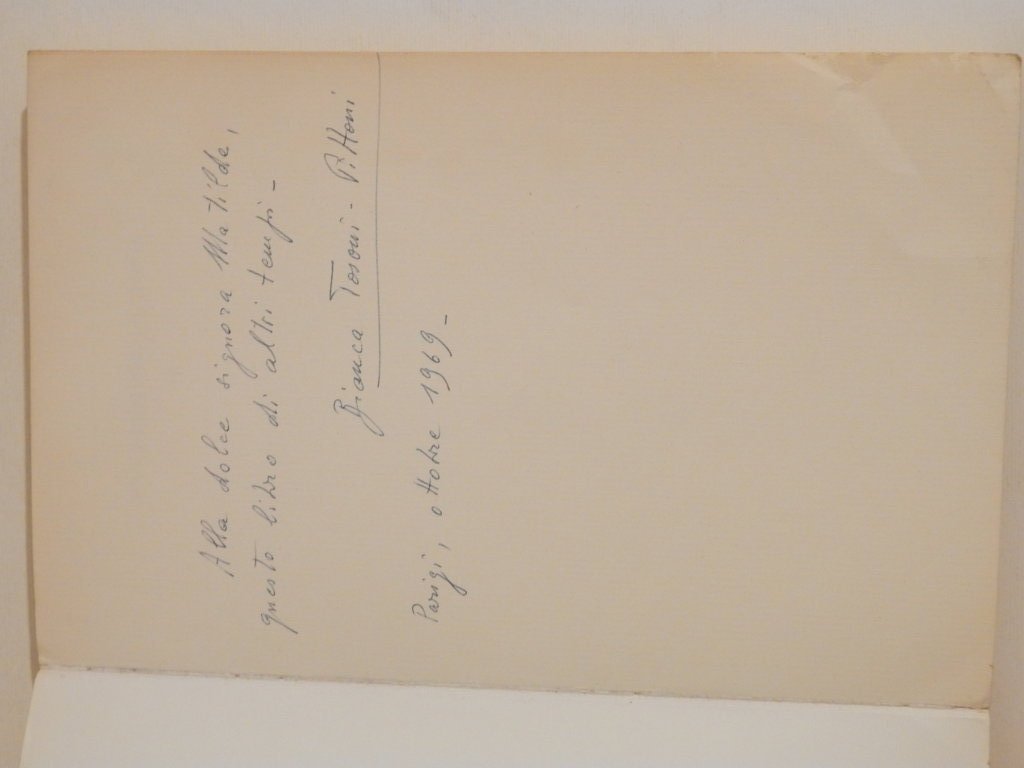 Alla dolce signora Matilde,
questo libro di altri tempi -
Bianca Tosoni - Pittoni
Parigi, ottobre 1969 -